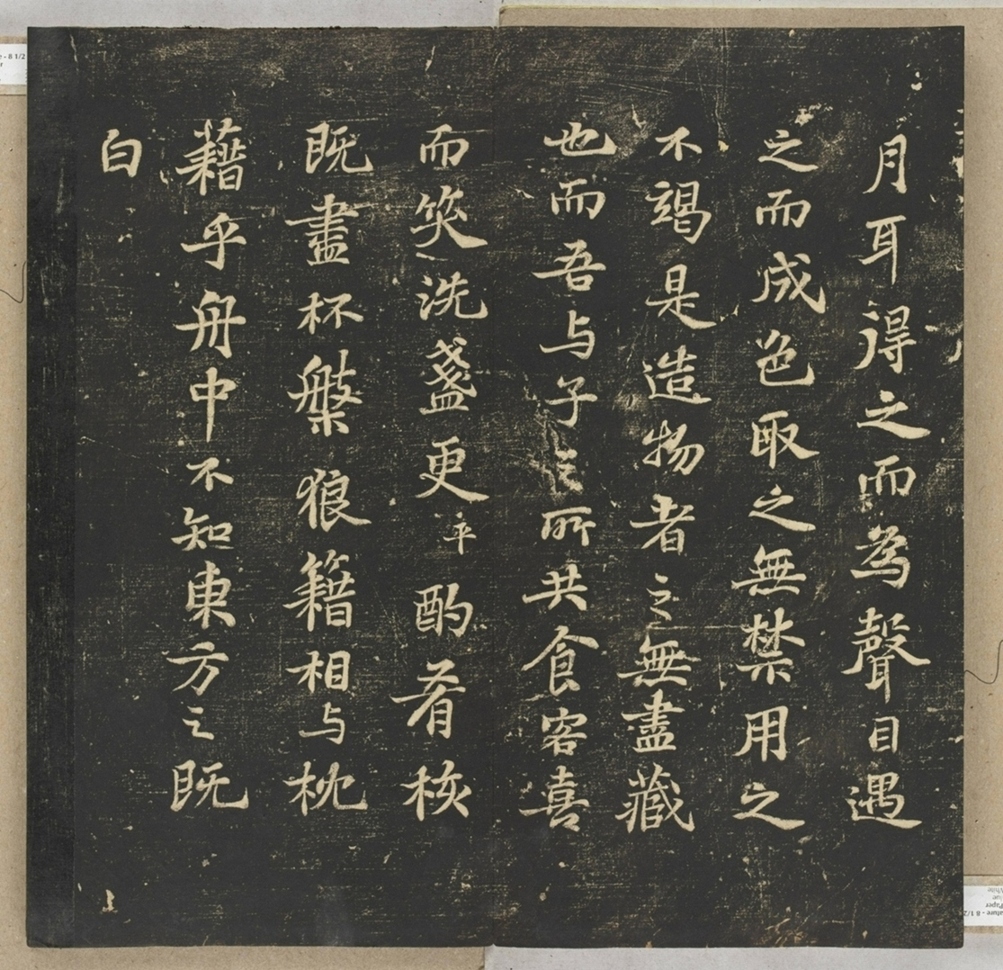 月耳得之而為聲目遇
之而成色取之無禁用之
不竭是造物者之無盡藏
也而吾与子之所共食客喜
而笑洗盞更平酌肴核
既盡杯槃狼籍相与枕
藉乎舟中不知東方之既
白